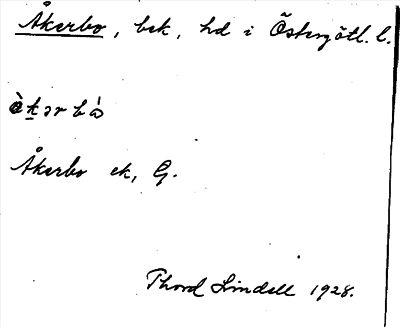 Åkerbo, bek, hd i Östergötl. l.
ò̀kərbò
Åkerbo ek, G.
Thord Lindell 1928.